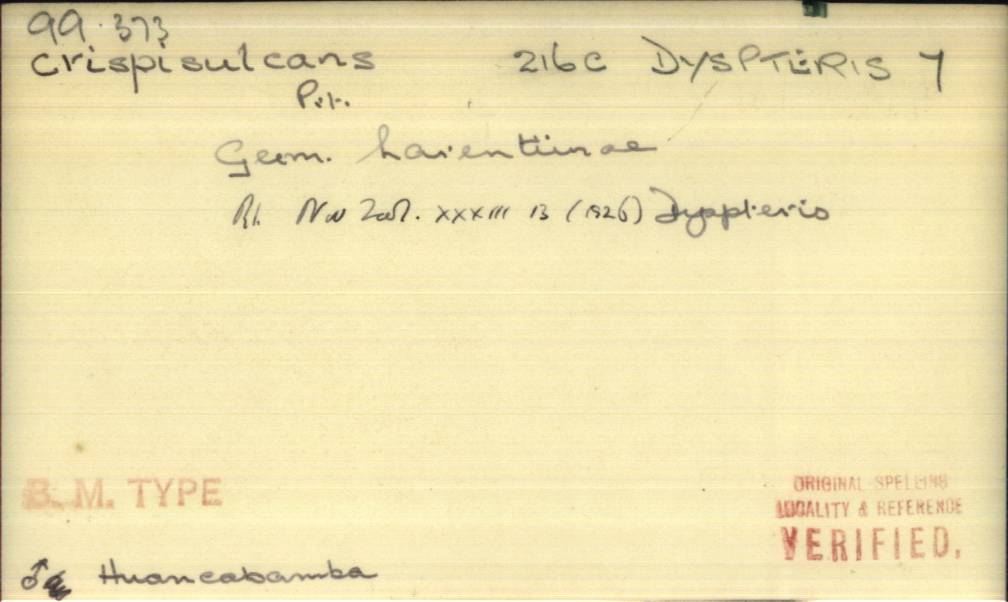 99.373
crispisulcans 216c DYSPTERIS 7
Prt.
Geom. Larentiinae
Prt. Nov Zool. XXXIII 13 (1926) Dyspteris
B. M. TYPE
ORIGINAL SPELLING
LOCALITY & REFERENCE
VERIFIED.
♂ Huancabamba